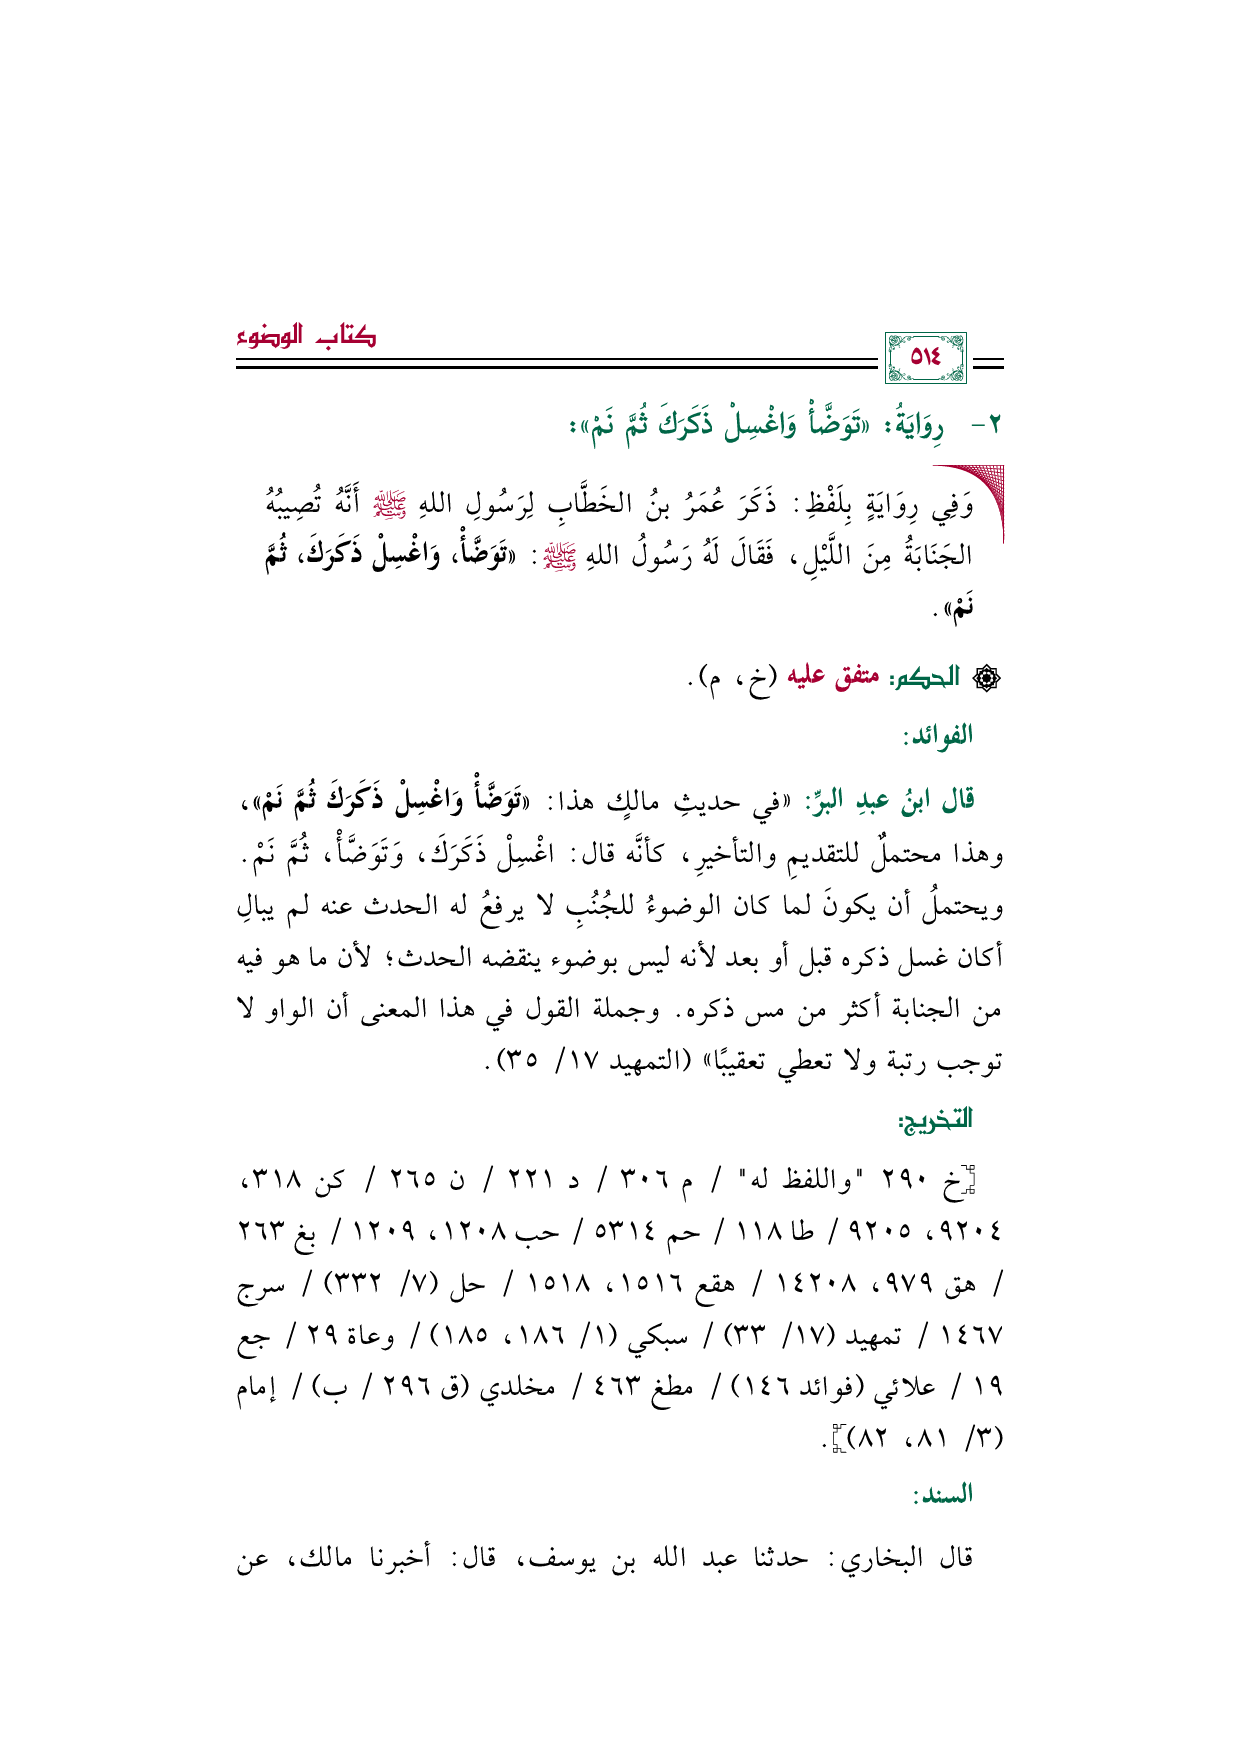 كتاب الوضوء
٥١٤
٢- رِوَايَةُ: «تَوَضَّأْ وَاغْسِلْ ذَكَرَكَ ثُمَّ نَمْ»:
وَفِي رِوَايَةٍ بِلَفْظِ: ذَكَرَ عُمَرُ بنُ الخَطَّابِ لِرَسُولِ اللهِ ﷺ أَنَّهُ تُصِيبُهُ
الجَنَابَةُ مِنَ اللَّيْلِ، فَقَالَ لَهُ رَسُولُ اللهِ ﷺ: «تَوَضَّأْ، وَاغْسِلْ ذَكَرَكَ، ثُمَّ
نَمْ».
الحكم: متفق عليه (خ، م).
الفوائد:
قال ابنُ عبدِ البرِّ: «في حديثِ مالكٍ هذا: «تَوَضَّأْ وَاغْسِلْ ذَكَرَكَ ثُمَّ نَمْ»،
وهذا محتملٌ للتقديمِ والتأخيرِ، كأنَّه قال: اغْسِلْ ذَكَرَكَ، وَتَوَضَّأْ، ثُمَّ نَمْ.
ويحتملُ أن يكونَ لما كان الوضوءُ للجُنُبِ لا يرفعُ له الحدث عنه لم يبالِ
أكان غسل ذكره قبل أو بعد لأنه ليس بوضوء ينقضه الحدث؛ لأن ما هو فيه
من الجنابة أكثر من مس ذكره. وجملة القول في هذا المعنى أن الواو لا
توجب رتبة ولا تعطي تعقيبًا» (التمهيد ١٧/ ٣٥).
التخريج:
[خ ٢٩٠ "واللفظ له" / م ٣٠٦ / د ٢٢١ / ن ٢٦٥ / كن ٣١٨،
٩٢٠٤، ٩٢٠٥ / طا ١١٨ / حم ٥٣١٤ / حب ١٢٠٨، ١٢٠٩ / بغ ٢٦٣
/ هق ٩٧٩، ١٤٢٠٨ / هقع ١٥١٦، ١٥١٨ / حل (٧/ ٣٣٢) / سرج
١٤٦٧ / تمهيد (١٧/ ٣٣) / سبكي (١/ ١٨٦، ١٨٥) / وعاة ٢٩ / جع
١٩ / علائي (فوائد ١٤٦) / مطغ ٤٦٣ / مخلدي (ق ٢٩٦ / ب) / إمام
(٣/ ٨١، ٨٢)].
السند:
قال البخاري: حدثنا عبد الله بن يوسف، قال: أخبرنا مالك، عن